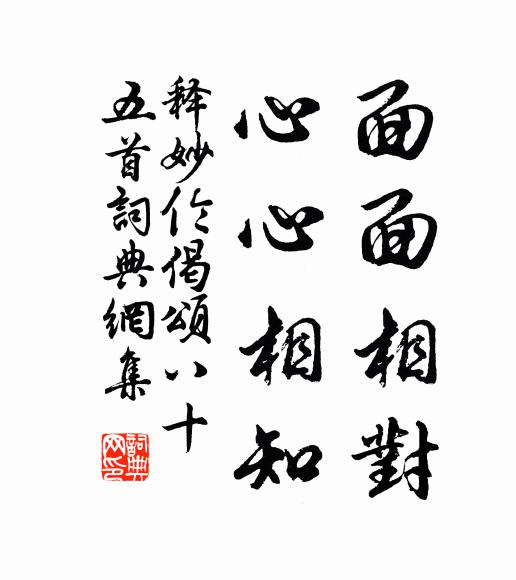 面面相對
心心相知
释妙伦偈頌八十
五首詞典網集
詞典網印